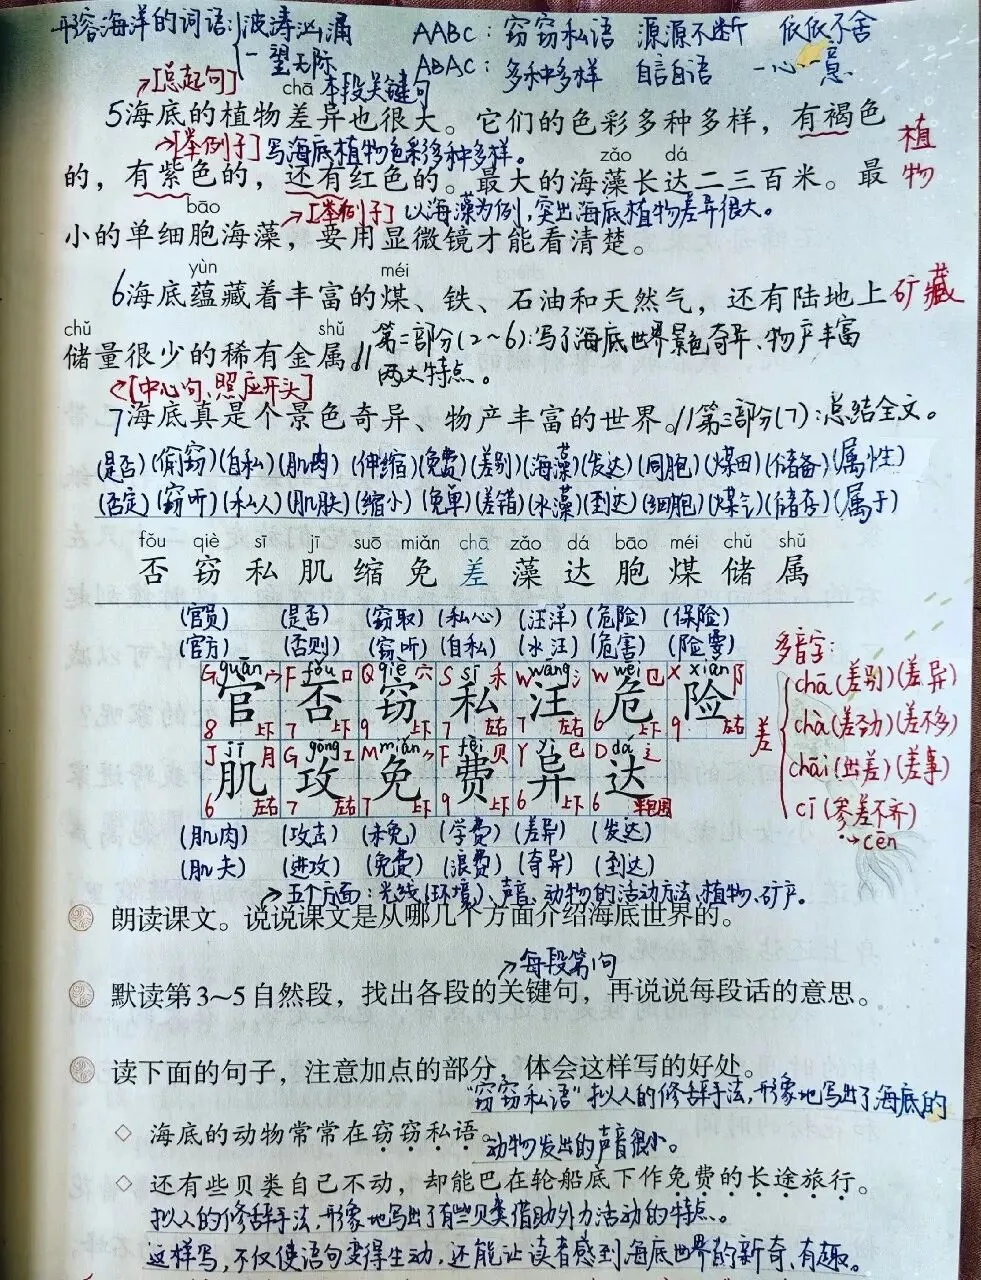 形容海洋的词语:波涛汹涌 AABC:窃窃私语 源源不断 依依不舍
一望无际 ABAC:多种多样 自言自语 一心一意
[总起句] chā 本段关键句
5海底的植物差异也很大。它们的色彩多种多样,有褐色
植物
[举例子]写海底植物色彩多种多样。 zǎo dá
的,有紫色的,还有红色的。最大的海藻长达二三百米。最
bāo [举例子] 以海藻为例,突出海底植物差异很大。
小的单细胞海藻,要用显微镜才能看清楚。
yùn méi
6海底蕴藏着丰富的煤、铁、石油和天然气,还有陆地上
矿藏
chǔ shǔ
储量很少的稀有金属。// 第二部分(2~6):写了海底世界景色奇异、物产丰富
两大特点。
[中心句、照应开头]
7海底真是个景色奇异、物产丰富的世界。//第三部分(7):总结全文。
(是否)(偷窃)(自私)(肌肉)(伸缩)(免费)(差别)(海藻)(发达)(同胞)(煤田)(储备)(属性)
(否定)(窃听)(私人)(肌肤)(缩小)(免单)(差错)(水藻)(到达)(细胞)(煤气)(储存)(属于)
fǒu qiè sī jī suō miǎn chā zǎo dá bāo méi chǔ shǔ
否 窃 私 肌 缩 免 差 藻 达 胞 煤 储 属
(官员) (是否) (窃取) (私心) (汪洋) (危险) (保险)
(官方) (否则) (窃听) (自私) (水汪) (危害) (险要)
G guān 宀 F fǒu 口 Q qiè 穴 S sī 禾 W wāng 氵 W wēi 㔾 X xiǎn 阝
官 否 窃 私 汪 危 险
8 上下 7 上下 9 上下 7 左右 7 左右 6 上下 9 左右
J jī 月 G gōng 工 M miǎn ⺈ F fèi 贝 Y yì 巳 D dá 辶
肌 攻 免 费 异 达
6 左右 7 左右 7 上下 9 上下 6 上下 6 半包围
(肌肉) (攻击) (未免) (学费) (差异) (发达)
(肌夫) (进攻) (免费) (浪费) (奇异) (到达)
多音字:
差
chā(差别)(差异)
chà(差劲)(差不多)
chāi(出差)(差事)
cī(参差不齐)
cēn
五个方面:光线(环境)、声音、动物的活动方法、植物、矿产。
朗读课文。说说课文是从哪几个方面介绍海底世界的。
每段第1句
默读第3~5自然段,找出各段的关键句,再说说每段话的意思。
读下面的句子,注意加点的部分,体会这样写的好处。
"窃窃私语"拟人的修辞手法,形象地写出了海底的
◇ 海底的动物常常在窃窃私语。动物发出的声音很小。
◇ 还有些贝类自己不动,却能巴在轮船底下作免费的长途旅行。
拟人的修辞手法,形象地写出了有些贝类借助外力活动的特点。
这样写,不仅使语句变得生动,还能让读者感到海底世界的新奇、有趣。